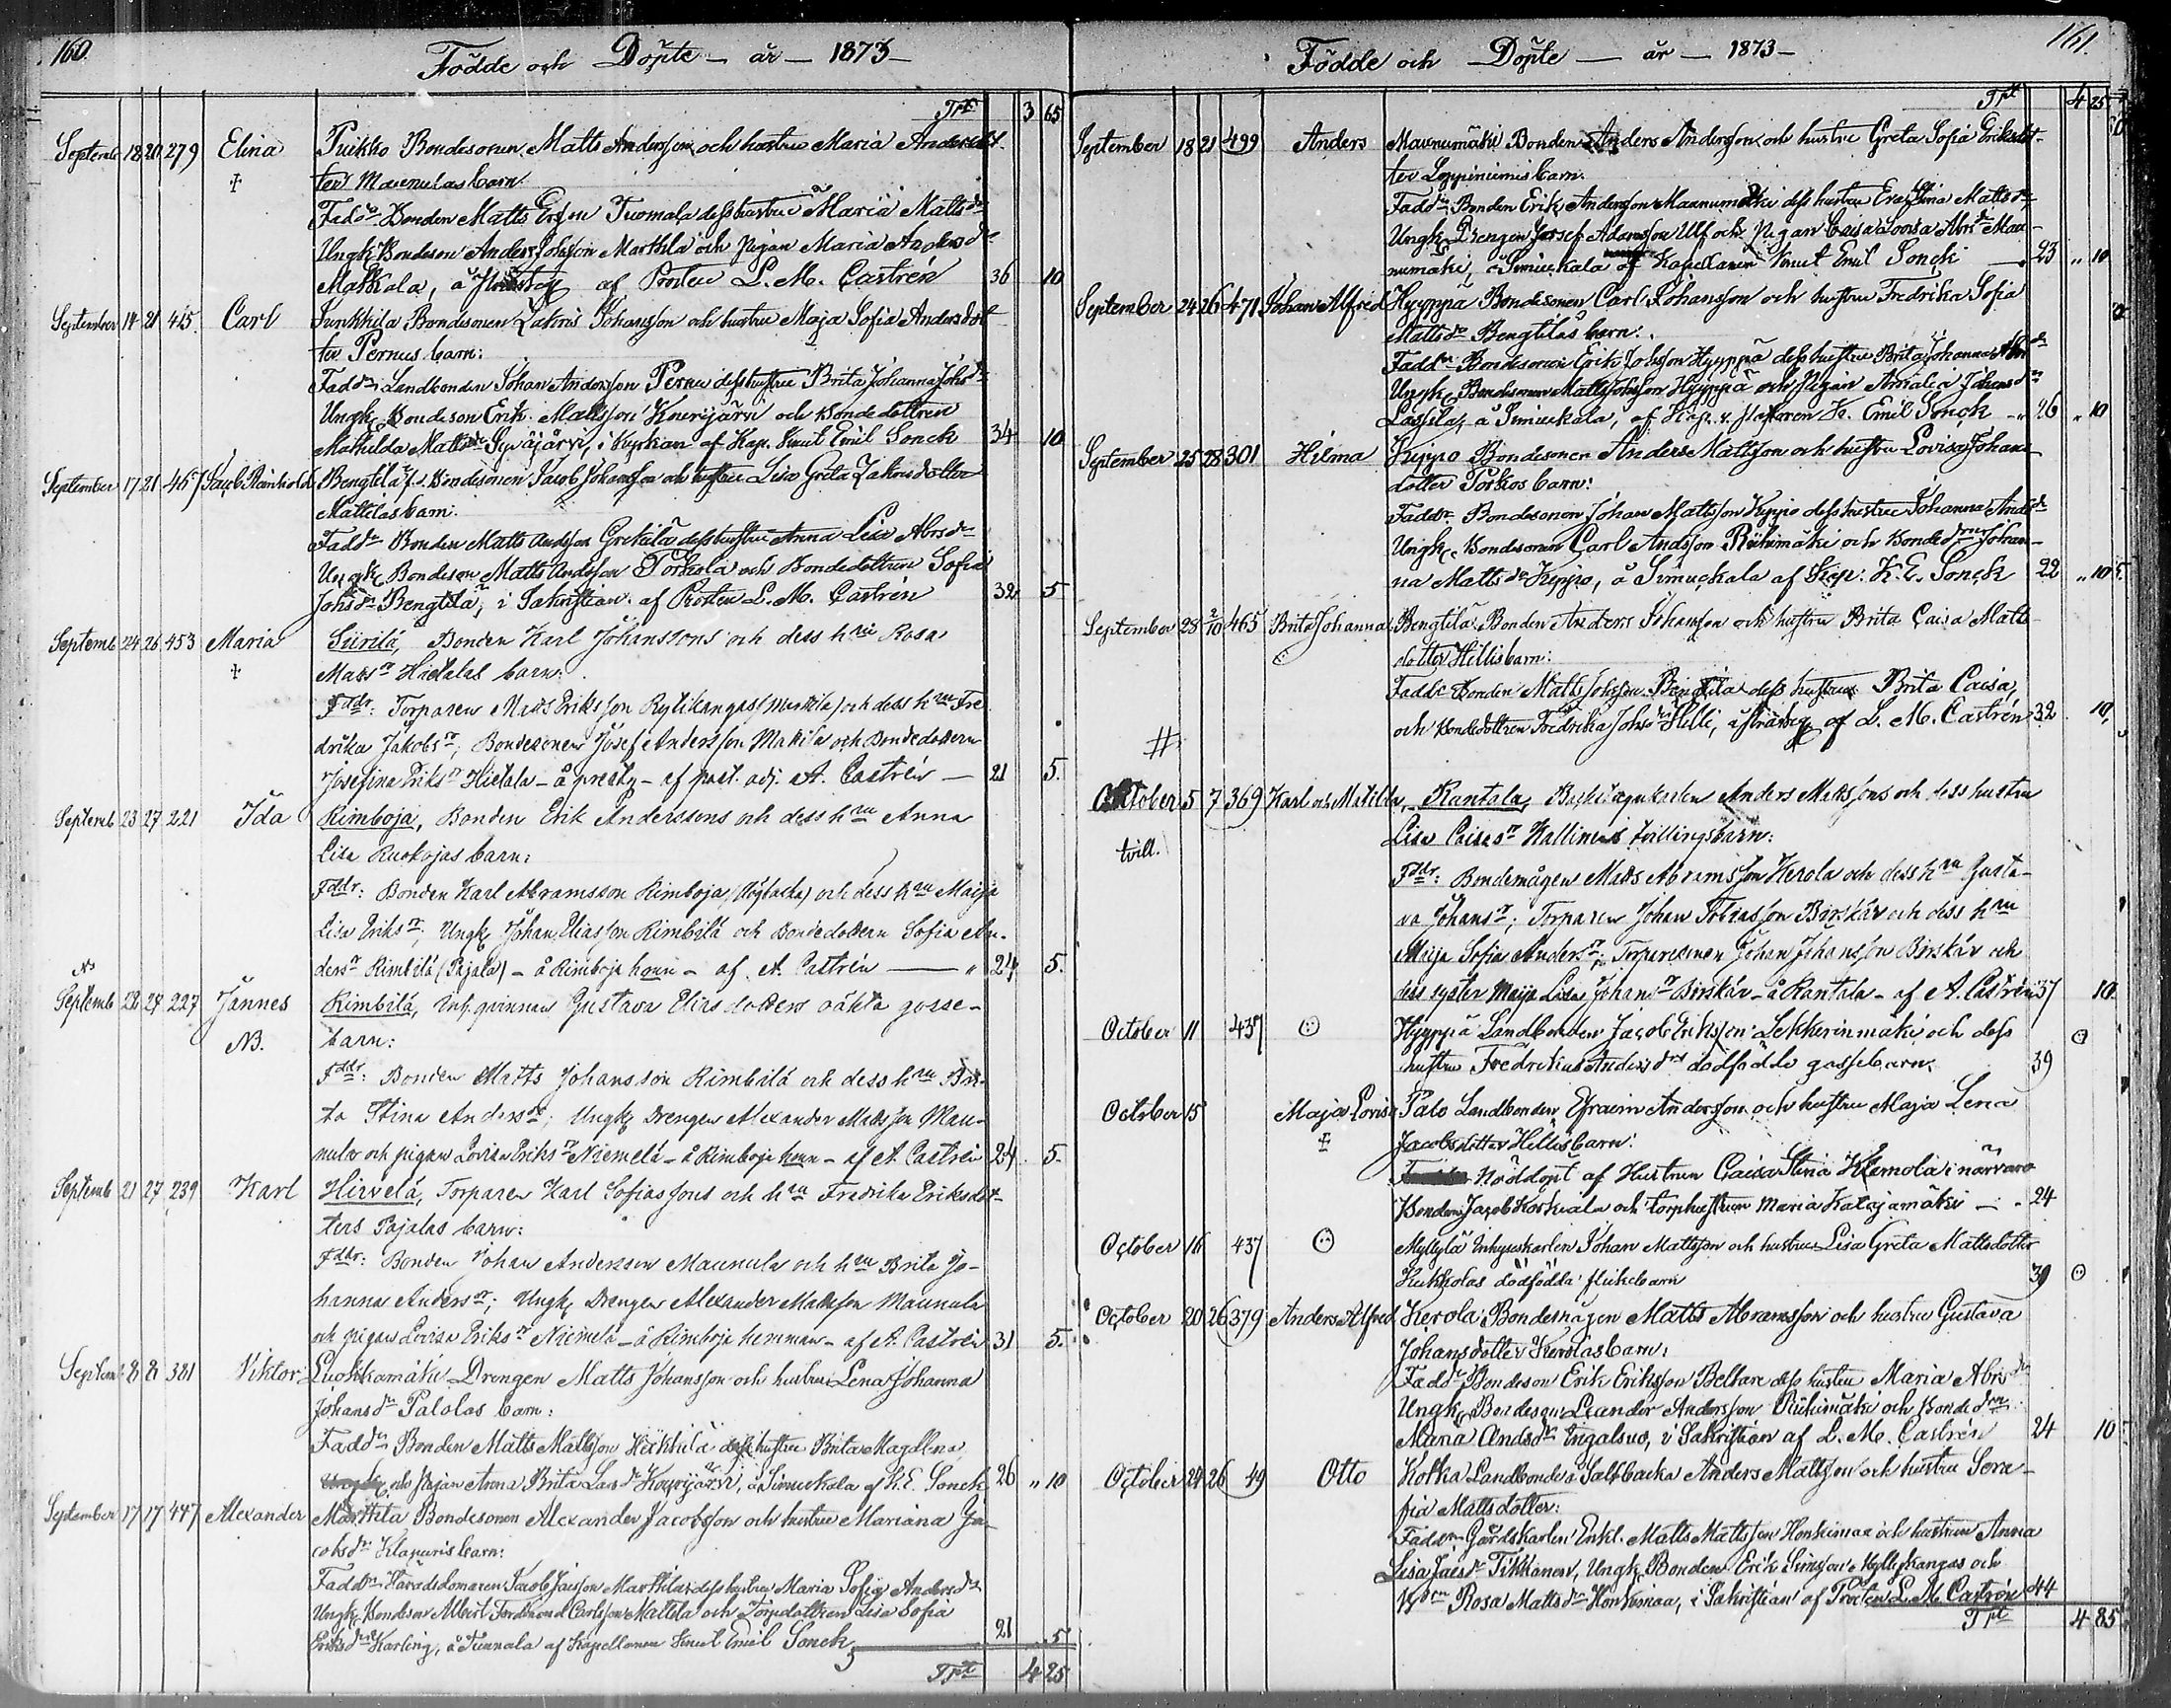 160.
Födde och Döpte — år — 1873 —
Trt 3 65
Septemb 18 20 279 Elina Puikko Bondesonen Matts Andersson och hustru Maria Andersdot-
‡ ter Maunulas barn.
Fadd: Bonden Matts Ersson Tuomala dess hustru Maria Mattsdr
Ungk. Bondeson Anders Johsson Marttila och Pigan Maria Andersdr
Mattala, å Prostg af Prosten L. M. Castrén 36 10
September 14 21 425 Carl Junkkila Bondesonen Zakris Johansson och hustru Maja Sofia Andersdot-
ter Pernus barn:
Fadd: Landbonden Johan Andersson Pernu dess hustru Brita Johanna Johsdr
Ungk. Bondeson Erik Mattsson Kouvijärvi och Bondedottren
Mathilda Mattsdr Syväjärvi, i kyrkan af Kap. Knut Emil Sonck 34 10
September 17 21 467 Jacob Reinhold Bengtilä Bondesonen Jacob Johansson och hustru Lisa Greta Zakrisdotter
Mattilas barn:
Faddr Bonden Matts Andsson Grekilä dess hustru Anna Lisa Abrsdr
Ungk. Bondeson Matts Andsson Torkola och Bondedottren Sofia
Johsdr Bengtilä, i Sakristian af Prosten L. M. Castrén 32 5
Septemb 24 26 453 Maria Siirilä, Bonden Karl Johanssons och dess hru Rosa
‡ Matsr Hietalas barn:
Fddr: Torparen Matts Eriksson Rytikangas (Mattila) och dess hru Fre
drika Jakobsr; Bondesonen Josef Andersson Mattila och Bondedottren
Josefina Eriksr Hietala — å prestg — af past. adj. A. Castrén — 21 5.
Septemb 23 27 221 Ida Rimboja, Bonden Erik Anderssons och dess hru Anna
Lisa Ruokojas barn:
Fddr: Bonden Karl Abramsson Rimboja (Högbacka) och dess hru Maija
Lisa Eriksr; Ungk. Johan Eliasson Rimbilä och Bondedottren Sofia An-
dersr Rimbilä (Pajala) — å Rimboja hemn — af A. Castrén — " 24 5.
Septemb 22 27 227 Jannes Rimbilä, Inh. qvinnan Gustava Elias dotters oäkta gosse-
NB. barn:
Fddr: Bonden Matts Johansson Rimbilä och dess hru Bri-
ta Stina Andersr; Ungk. Drengen Alexander Mattsson Mau-
nula och pigan Lovisa Eriksr Niemelä — å Rimboja hemn — af A. Castrén 24 5.
Septemb 21 27 239 Karl Hirvelä, Torparen Karl Sofiassons och hru Fredrika Eriksdot-
ters Pajalas barn:
Fddr: Bonden Johan Andersson Maunula och hru Brita Jo-
hanna Andersr; Ungk. Drengen Alexander Mattsson Maunula
och pigan Lovisa Eriksr Niemelä — å Rimboja hemman — af A. Castrén 31 5.
Septemb 8 8 381 Viktor Luokkamäki Drengen Matts Johansson och hustru Lena Johanna
Johansdr Palolas barn:
Faddr Bonden Matts Mattsson Heikkilä dess hustru Brita Magdlena
och Pigan Anna Brita Larsdr Kouvijärvi, å Simuckala af K. E. Sonck 26 " 10
September 17 17 447 Alexander Marttila Bondesonen Alexander Jacobsson och hustru Mariana Ja-
cobsdr Klapuris barn:
Faddr Häradsdomaren Jacob Jacsson Marttila dess hustru Maria Sofia Andersdr
Ungk. Bondeson Albert Ferdinand Carlsson Mattila och Torpdottren Lisa Sofia
Eriksdr Karling, å Tunnala af Kapellanen Knut Emil Sonck 21 5
Trt 4 25
161.
Födde och Döpte — år — 1873 —
Trt 4 25
September 18 21 499 Anders Maunumäki Bonden Anders Andersson och hustru Greta Sofia Eriksdot-
ter Leppiniemis barn.
Faddr Bonden Erik Andersson Maunumäki dess hustru Eva Stina Mattsdr
Ungk. Drengen Josef Adamsson Ulf och Pigan Caisa Lovisa Abrsdr Mau-
numäki, å Simuckala af Kapellanen Knut Emil Sonck — 23 " 10
September 24 26 471 Johan Alfred Hyyppä Bondesonen Carl Johansson och hustru Fredrika Sofia
Mattsdr Bengtiläs barn:
Faddr Bondesonen Erik Johsson Hyyppä dess hustru Brita Johanna Abrsdr
Ungk. Bondesonen Matts Johsson Hyyppä och Pigan Amalia Johansdr
Lassila, å Simuckala, af Kap. K. Emil Sonck — " 26 " 10
September 25 28 301 Hilma Keppo Bondesonen Anders Mattsson och hustru Lovisa Johans-
dotter Porkos barn:
Faddr. Bondesonen Johan Mattsson Keppo dess hustru Johanna Andsdr
Ungk. Bondesonen Carl Andsson Riihimäki och Bondedtrn Johan-
na Mattsdr Keppo, å Simuckala af Kap: K. E. Sonck 22 " 10
September 28 2/10 465 Brita Johanna Bengtilä Bonden Anders Johansson och hustru Brita Caisa Matts-
dotter Hillis barn:
Faddr Bonden Matts Johsson Bengtilä dess hustru Brita Caisa,
och Bondedottren Fredrika Johsdr Hilli, å Prostg af L. M. Castrén 32 10,
#
October 5 7 369 Karl och Matilda, Rantala, Anders Matssons och dess hustru
tvill. Lisa Caisasr Kallinens tvillingsbarn:
Fddr: Bondemågen Matts Abramsson Kerola och dess hru Gusta-
va Johansr; Torparen Johan Tobiasson Birskär och dess hru
Maija Sofia Andersr; Torparesonen Johan Johansson Birskär och
dess syster Maija Lisa Johansr Birskär — å Rantala — af A. Castrén 37 10.
October 11 437 ☉ Hyyppä Landbonden Jacob Eriksson Lekkerinmäki och dess
hustru Fredrika Andersdrs dödfödde gossebarn. 39
October 15 Maja Lovisa Palo Landbonden Efraim Andersson och hustru Maja Lena
‡ Jacobsdotter Hillis barn:
Nöddöpt af Hustrun Caisa Stina Klemola i närvaro
Bonden Jacob Korkiala och torphustrun Maria Katajamäki — " 24
October 16 437 ☉ Myllylä Inhyseskarlen Johan Mattsson och hustru Lisa Greta Mattsdotter
Kukkolas dödfödda flickebarn 39 ☉
October 20 26 379 Anders Alfred Kerola Bondemågen Matts Abramsson och hustru Gustava
Johansdotter Kerolas barn:
Faddr Bondeson Erik Eriksson Beltare dess hustru Maria Abrsdr
Ungk. Bondeson Leander Andersson Riihimäki och Bondedtrn
Maria Andsdr Ingalsuo, i Sakristian af L. M. Castrén 24 10
October 24 26 49 Otto Kotka Landbonde å Salfbacka Anders Mattsson och hustru Sera-
fia Mattsdotter:
Faddr Gårdskarlen Enkl. Matts Mattsson Honkimaa och hustrun Anna
Lisa Jacsdr Tikkanen, Ungk. Bonden Erik Simsson Kyllyskangas och
Rosa Mattsdr Honkimaa, i Sakristian af Prosten L. M. Castrén 44
Trt 4 85